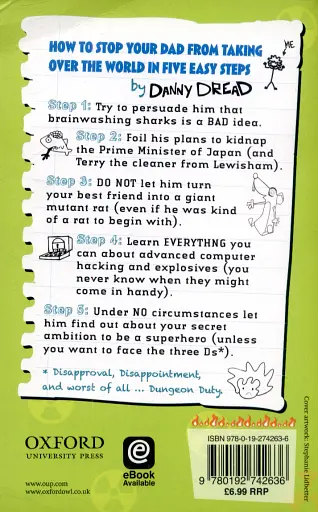 HOW TO STOP YOUR DAD FROM TAKING
OVER THE WORLD IN FIVE EASY STEPS
ME
by DANNY DREAD
Step 1: Try to persuade him that
brainwashing sharks is a BAD idea.
Step 2: Foil his plans to kidnap
the Prime Minister of Japan (and
Terry the cleaner from Lewisham).
Step 3: DO NOT let him turn
your best friend into a giant
mutant rat (even if he was kind
of a rat to begin with).
Step 4: Learn EVERYTHNG you
can about advanced computer
hacking and explosives (you
never know when they might
come in handy).
Step 5: Under NO circumstances let
him find out about your secret
ambition to be a superhero (unless
you want to face the three Ds*).
* Disapproval, Disappointment,
and worst of all ... Dungeon Duty.
Cover artwork: Stephanie Ledbetter
OXFORD
UNIVERSITY PRESS
www.oup.com
www.oxfordowl.co.uk
e
eBook
Available
ISBN 978-0-19-274263-6
9 780192 742636
£6.99 RRP